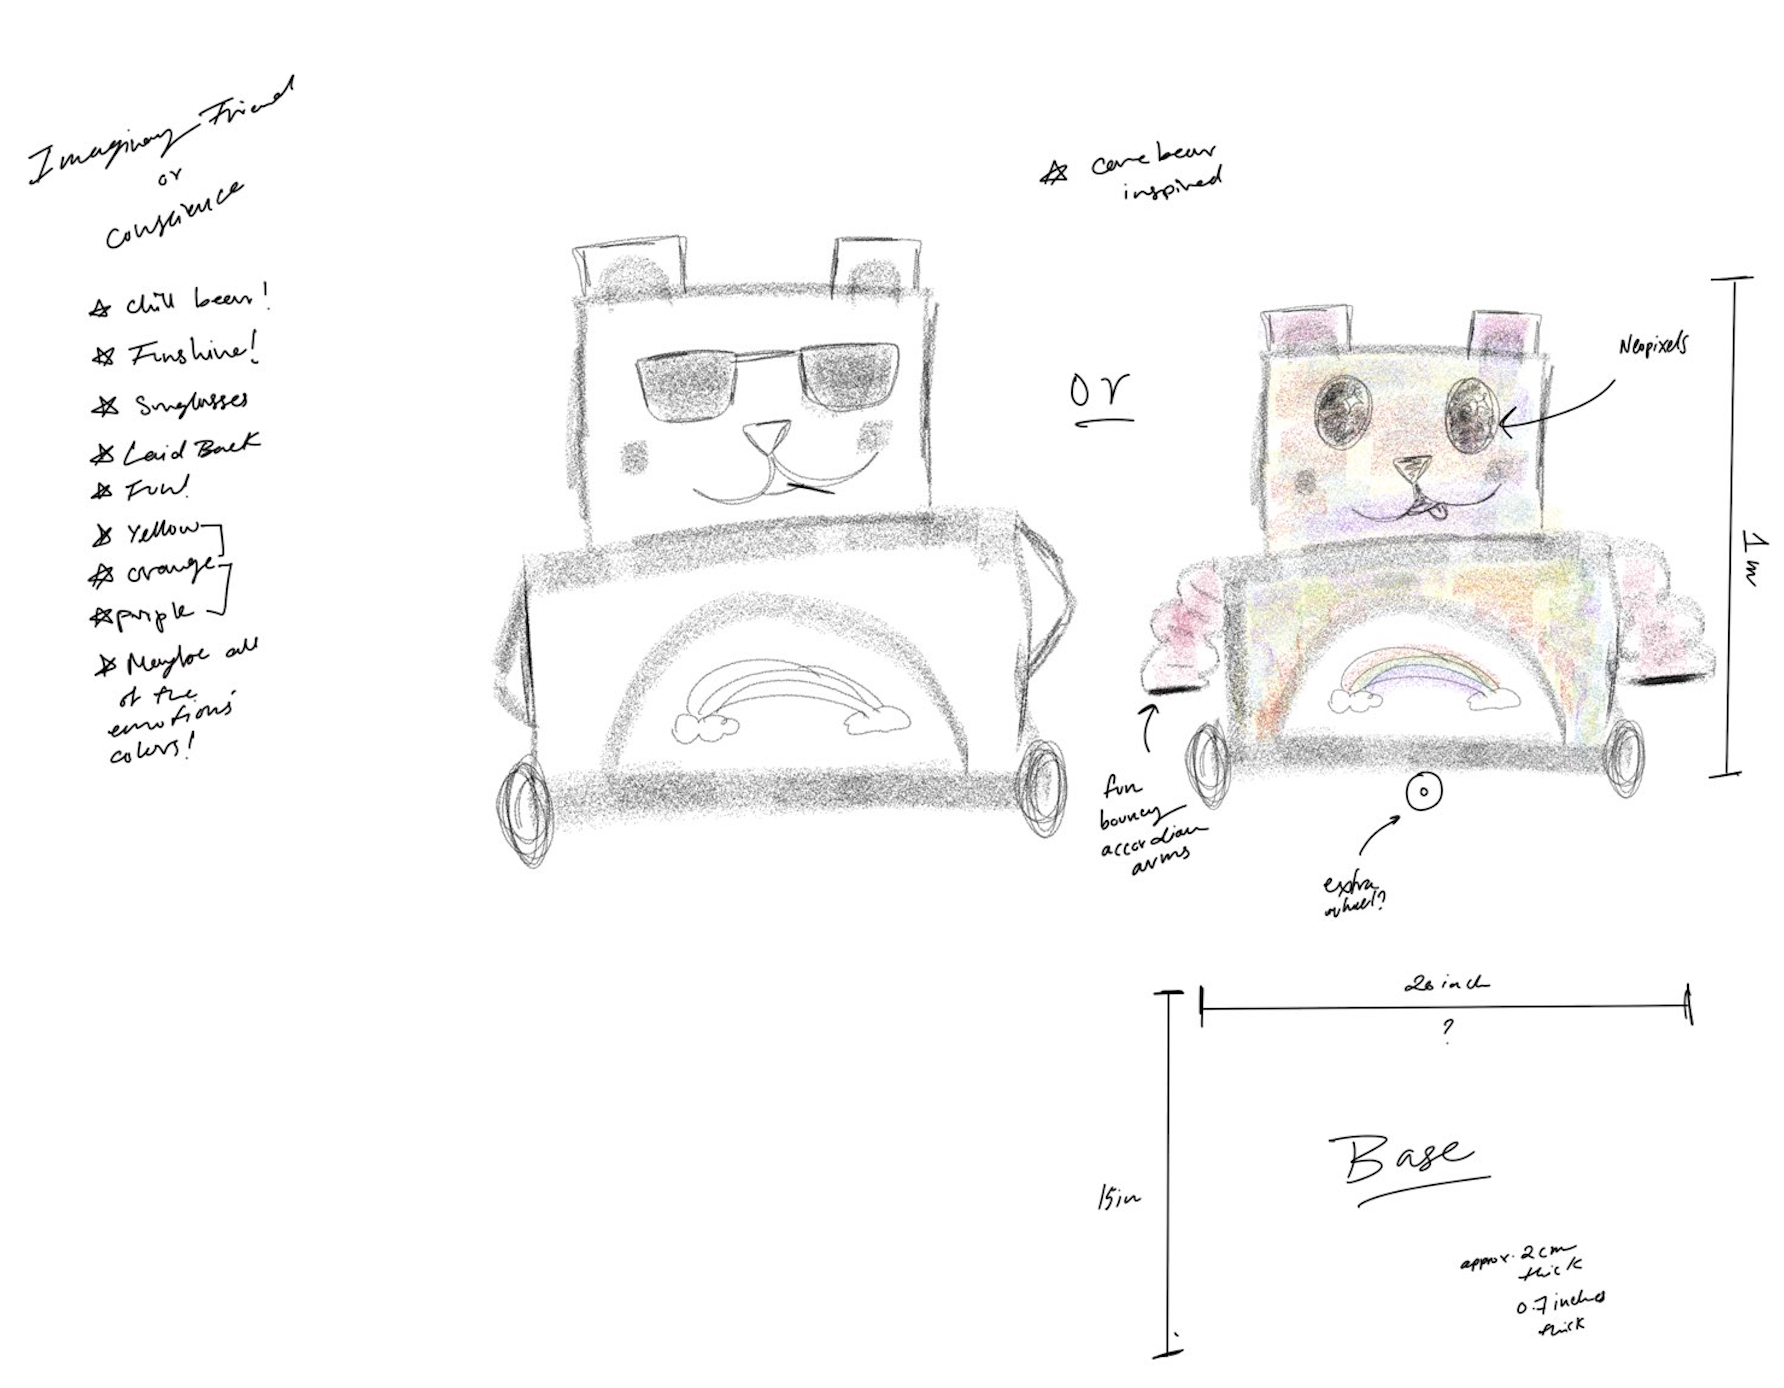 Imaginary Friend
or
conscience
☆ chill bear!
☆ Funshine!
☆ Sunglasses
☆ Laid Back
☆ Fun!
☆ Yellow
☆ orange
☆ purple
☆ Maybe all
of the
emotions'
colors!
or
☆ care bear
inspired
Neopixels
1m
fun
bouncy
accordian
arms
extra
wheel?
20 inch
?
15in
Base
approx. 2cm
thick
0.7 inches
thick